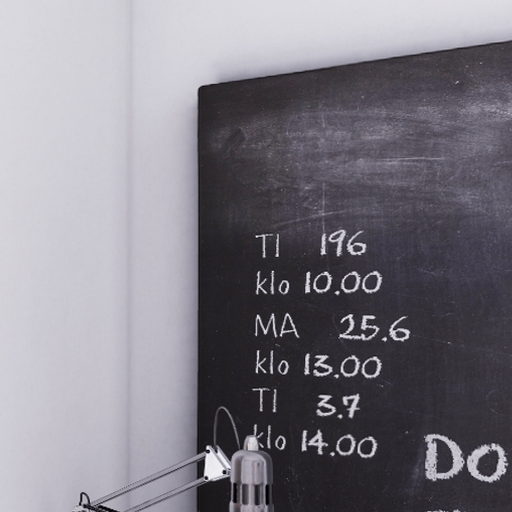 TI 196
klo 10.00
MA 25.6
klo 13.00
TI 3.7
klo 14.00
Do